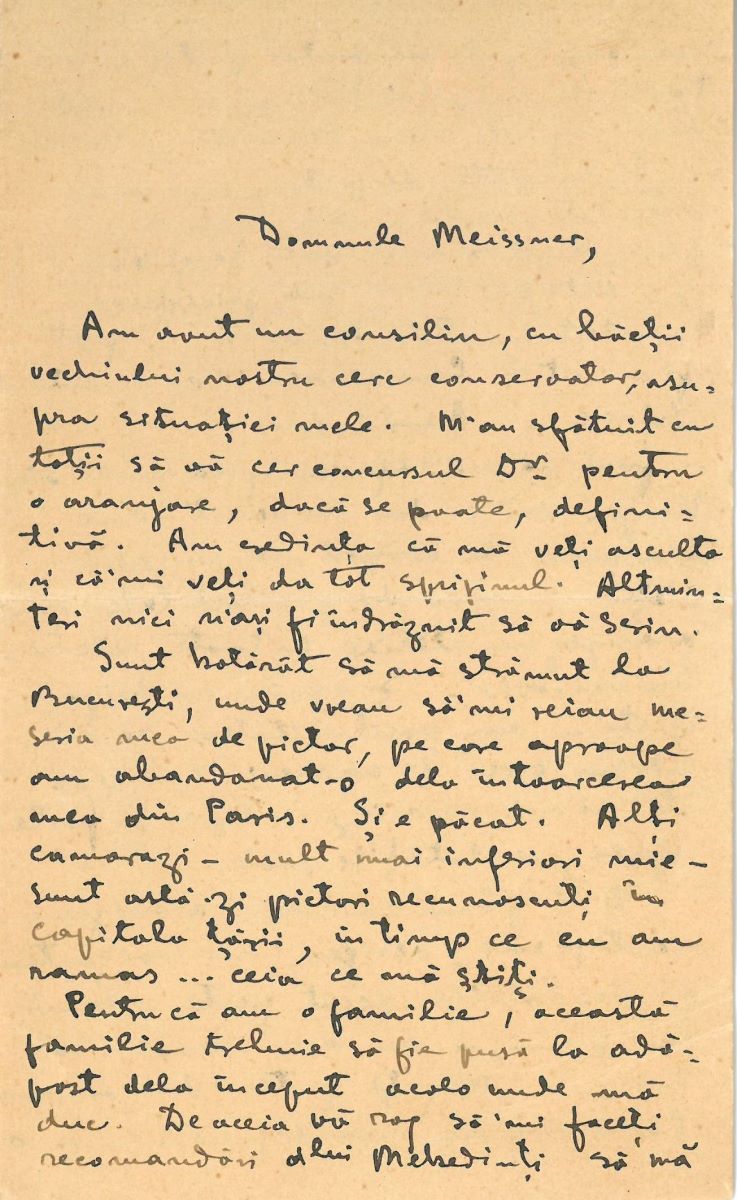 Domnule Meissner,
Am avut un consiliu, cu băeții
vechiului nostru cerc conservator, asu-
pra situației mele. M'au sfătuit cu
toții să vă cer concursul Dv. pentru
o aranjare, dacă se poate, defini-
tivă. Am credința că mă veți asculta
și că'mi veți da tot sprijinul. Altmin-
teri nici n'ași fi îndrăznit să vă scriu.
Sunt hotărât să mă strămut la
București, unde vreau să'mi reiau me-
seria mea de pictor, pe care aproape
am abandonat-o dela întoarcerea
mea din Paris. Și e păcat. Alți
camarazi – mult mai inferiori mie –
sunt astă-zi pictori recunoscuți în
capitala țării, în timp ce eu am
ramas ... ceia ce mă știți.
Pentrucă am o familie, această
familie trebuie să fie pusă la adă-
post dela început acolo unde mă
duc. De aceia vă rog să'mi faceți
recomandări dlui Mehedinți să mă